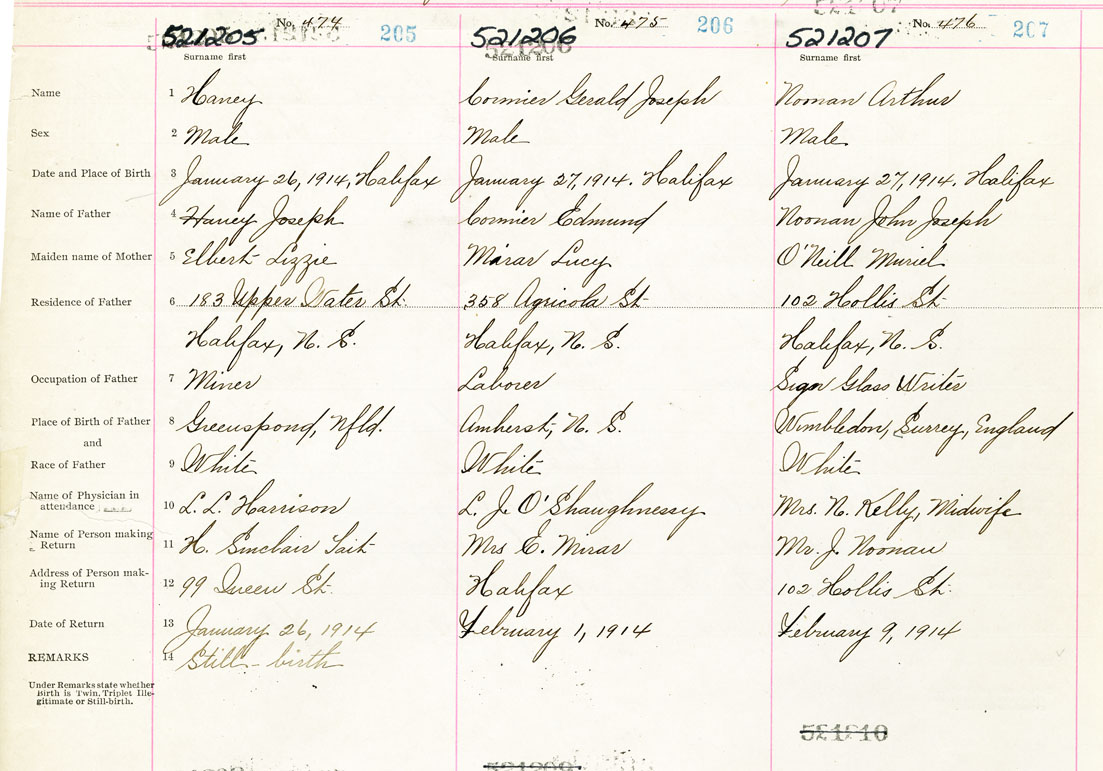 No. 474 205 No. 475 206 No. 476 207
521205 521206 521207
Surname first Surname first Surname first
Name 1 Haney Cormier Gerald Joseph Noonan Arthur
Sex 2 Male Male Male
Date and Place of Birth 3 January 26, 1914, Halifax January 27, 1914. Halifax January 27, 1914. Halifax
Name of Father 4 Haney Joseph Cormier Edmund Noonan John Joseph
Maiden name of Mother 5 Elbert Lizzie Mirar Lucy O'Neill Muriel
Residence of Father 6 183 Upper Water St. 358 Agricola St 102 Hollis St
Halifax, N. S. Halifax, N. S. Halifax, N. S.
Occupation of Father 7 Miner Laborer Sign Glass Writer
Place of Birth of Father 8 Greenspond, Nfld. Amherst, N. S. Wimbledon, Surrey, England
and
Race of Father 9 White White White
Name of Physician in
attendance 10 L. L. Harrison L. J. O'Shaughnessy Mrs. N. Kelly, Midwife
Name of Person making
Return 11 H. Sinclair Tait Mrs E. Mirar Mr. J. Noonan
Address of Person mak-
ing Return 12 99 Queen St. Halifax 102 Hollis St.
Date of Return 13 January 26, 1914 February 1, 1914 February 9, 1914
REMARKS 14 Still-birth
Under Remarks state whether
Birth is Twin, Triplet Ille-
gitimate or Still-birth.
521210